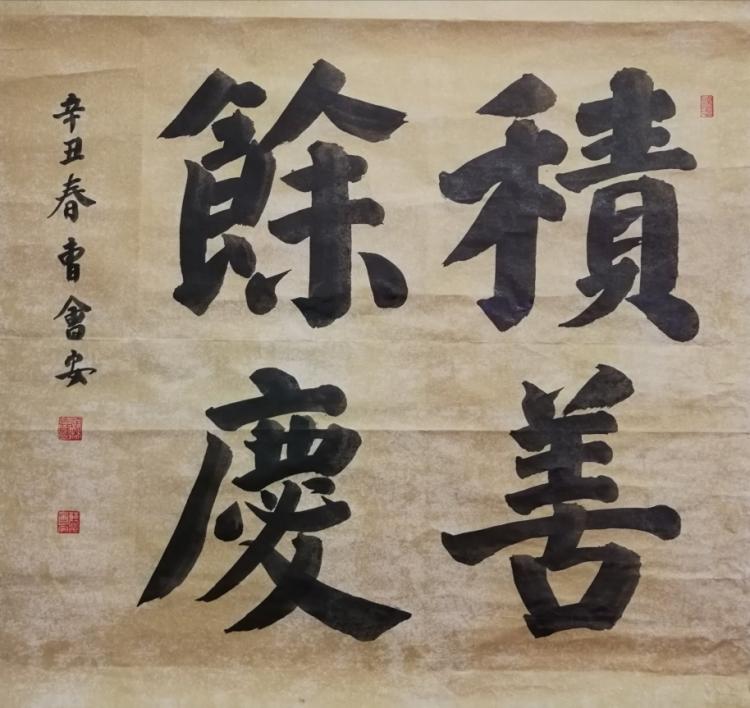 積善
餘慶
辛丑春曹會安